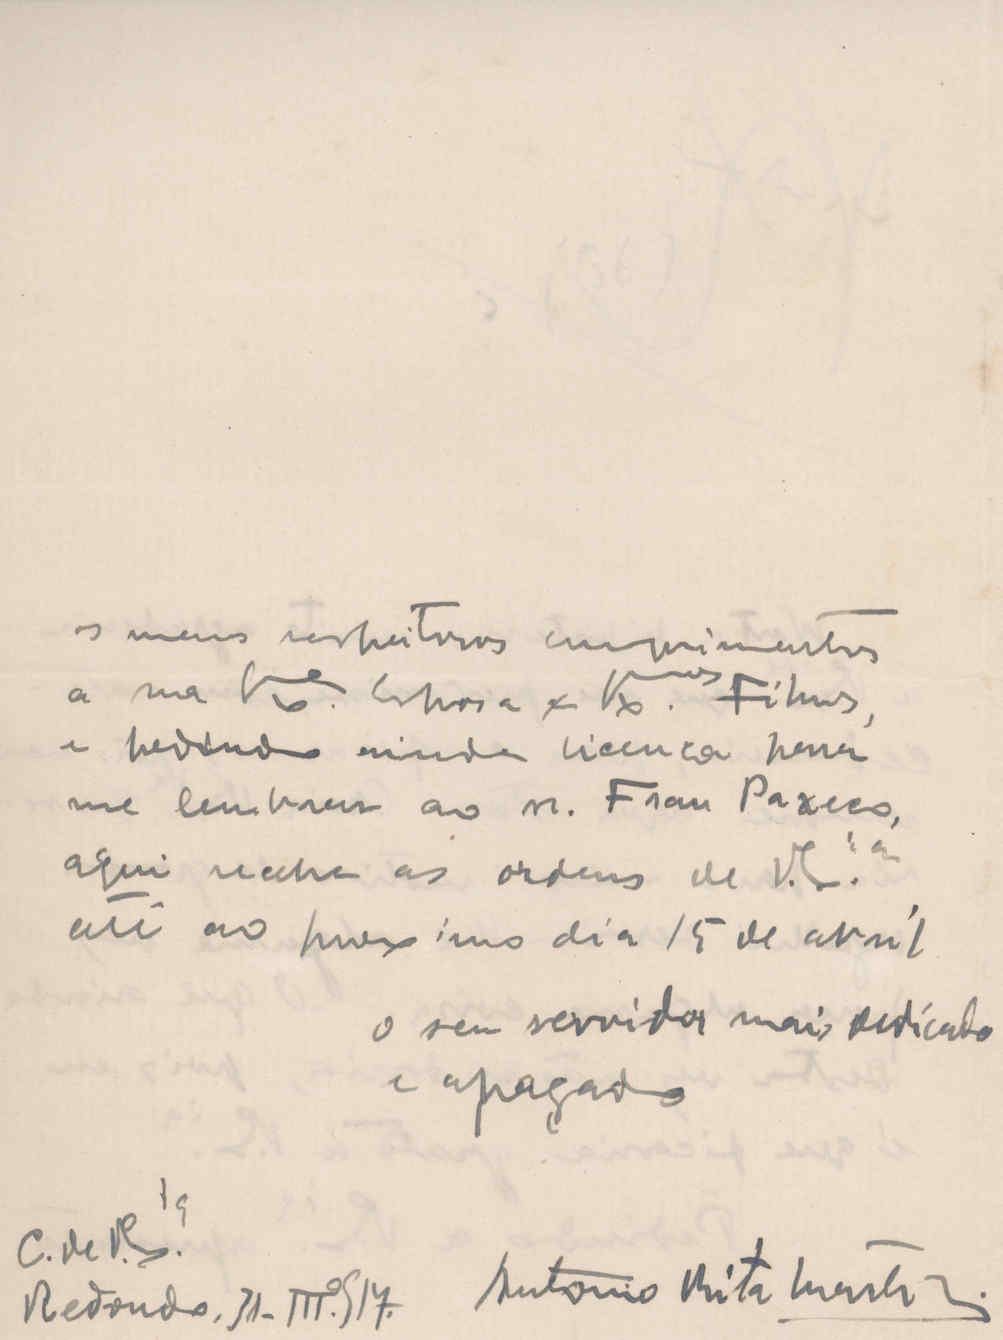 os meus respeitosos cumprimentos
a sua Exª. Esposa e Exmos. Filhos,
e pedindo ainda licença para
me lembrar ao sr. Fran Paxeco,
aqui recebe as ordens de V. Exª.
até ao proximo dia 15 de abril
o seu servidor mais dedicado
e apagado
C. de V. Exª.
Redondo, 31-III-917.
Antonio Rita Martins.